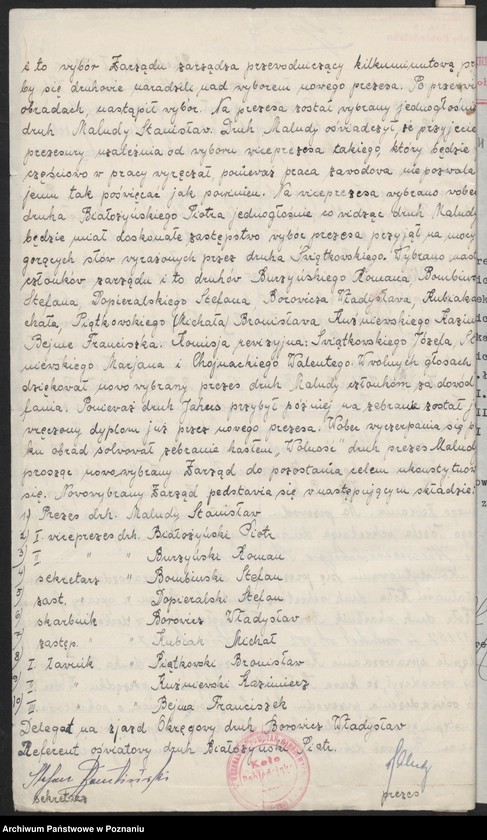 i to wybór Zarządu zarządza przewodniczący kilkuminutową
by się druhowie naradzili nad wyborem nowego prezesa. Po
obradach, nastąpił wybór. Na prezesa został wybrany jednogłośnie
druh Maludy Stanisław. Druh Maludy oświadczył że przyjęcie
prezesury uzależnia od wyboru viceprezesa takiego, który będzie
częściowo w pracy wyręczał, ponieważ praca zawodowa nie pozwala
jemu tak poświęcać jak powinien. Na viceprezesa wybrano wobec
druha Białożyńskiego Piotra jednogłośnie co widząc druh Maludy
będzie miał doskonałe zastępstwo wybór prezesa przyjął na mocy
gorących słów wyrażonych przez druha Piątkowskiego. Wybrano
członków zarządu i to druhów Burzyńskiego Romana Bombiński
Stefana, Dopieralskiego Stefana Borowicza Władysława, Kubiaka
chała, Piątkowskiego (Michała) Bronisława Kuźniewskiego
Bejme Franciszka. Komisja revizyjna: Świątkowskiego Józefa,
niewskiego Marjana i Chojnackiego Walentego. W wolnych głosach
dziękował nowo wybrany prezes druh Maludy członkom za dowod
fania. Ponieważ druh przybył później na zebranie został
vręczony dyplom już przez nowego prezesa. Wobec wyczerpania się
ku obrad solvował zebranie hasłem, "Wolność" druh prezes Maludy
prosząc nowo wybrany Zarząd do pozostania celem ukonstytuow
się. Nowowybrany Zarząd pedstavia się w następującym składzie:
1) Prezes drh. Maludy Stanisław
2) I. viceprezes drh. Białożyński Piotr
3) II " " Burzyński Roman
4) sekretarz " Bombiński Stefan
5) zast. " Dopieralski Stefan
6) skarbnik " Borovicz Władysław
7) zastęp. " Kubiak Michał
8) I. Ławnik " Piątkovski Bronisław
9) II. " " Kuźnievski Kazimierz
10) III. " " Bejma Franciszek
Delegat na zjazd Okręgovy druh Borovicz Władysław
Referent oświatovy druh Białożyński Piotr.
Koło
Stefan Bombiński
sekretarz prezes
Archiwum Państwowe w Poznaniu